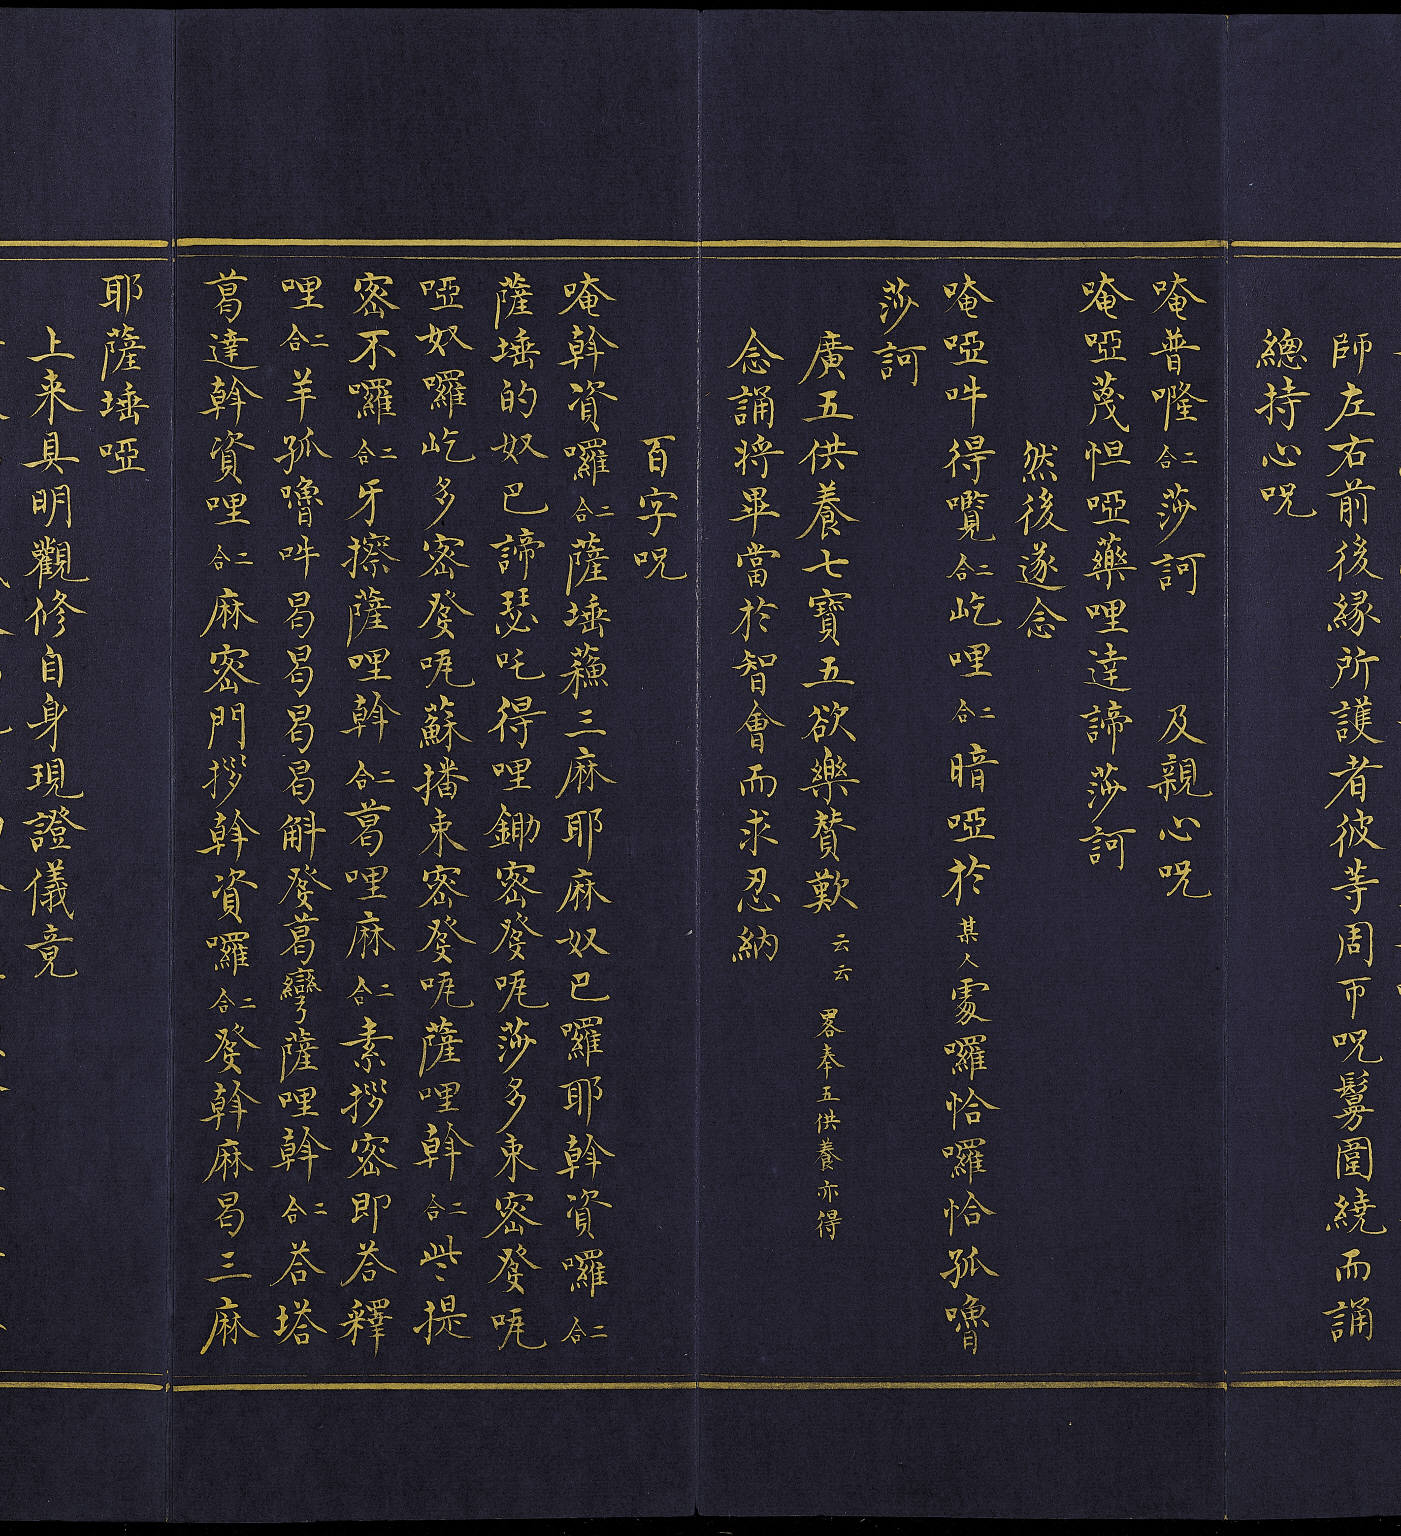 師左右前後緣所護者彼等周帀呪鬘圍繞而誦
總持心呪
唵普嚨二合莎訶 及親心呪
唵啞蔑怛啞藥哩達諦莎訶
然後遂念
唵啞吽得囕二合屹哩二合暗啞於某人處囉恰囉恰孤嚕
莎訶
廣五供養七寶五欲樂贊歎云云 畧奉五供養亦得
念誦將畢當於智會而求忍納
百字呪
唵斡資囉二合薩埵蘓三麻耶麻奴巴囉耶斡資囉二合
薩埵的奴巴諦瑟吒得哩鋤密發呃莎多束密發呃
啞奴囉屹多密發呃蘇播束密發呃薩哩斡二合些提
密不囉二合牙擦薩哩斡二合葛哩麻二合素拶密即荅釋
哩二合羊孤嚕吽曷曷曷曷斛發葛彎薩哩斡二合荅塔
葛達斡資哩二合麻密門拶斡資囉二合發斡麻曷三麻
耶薩埵啞
上来具明觀修自身現證儀竟